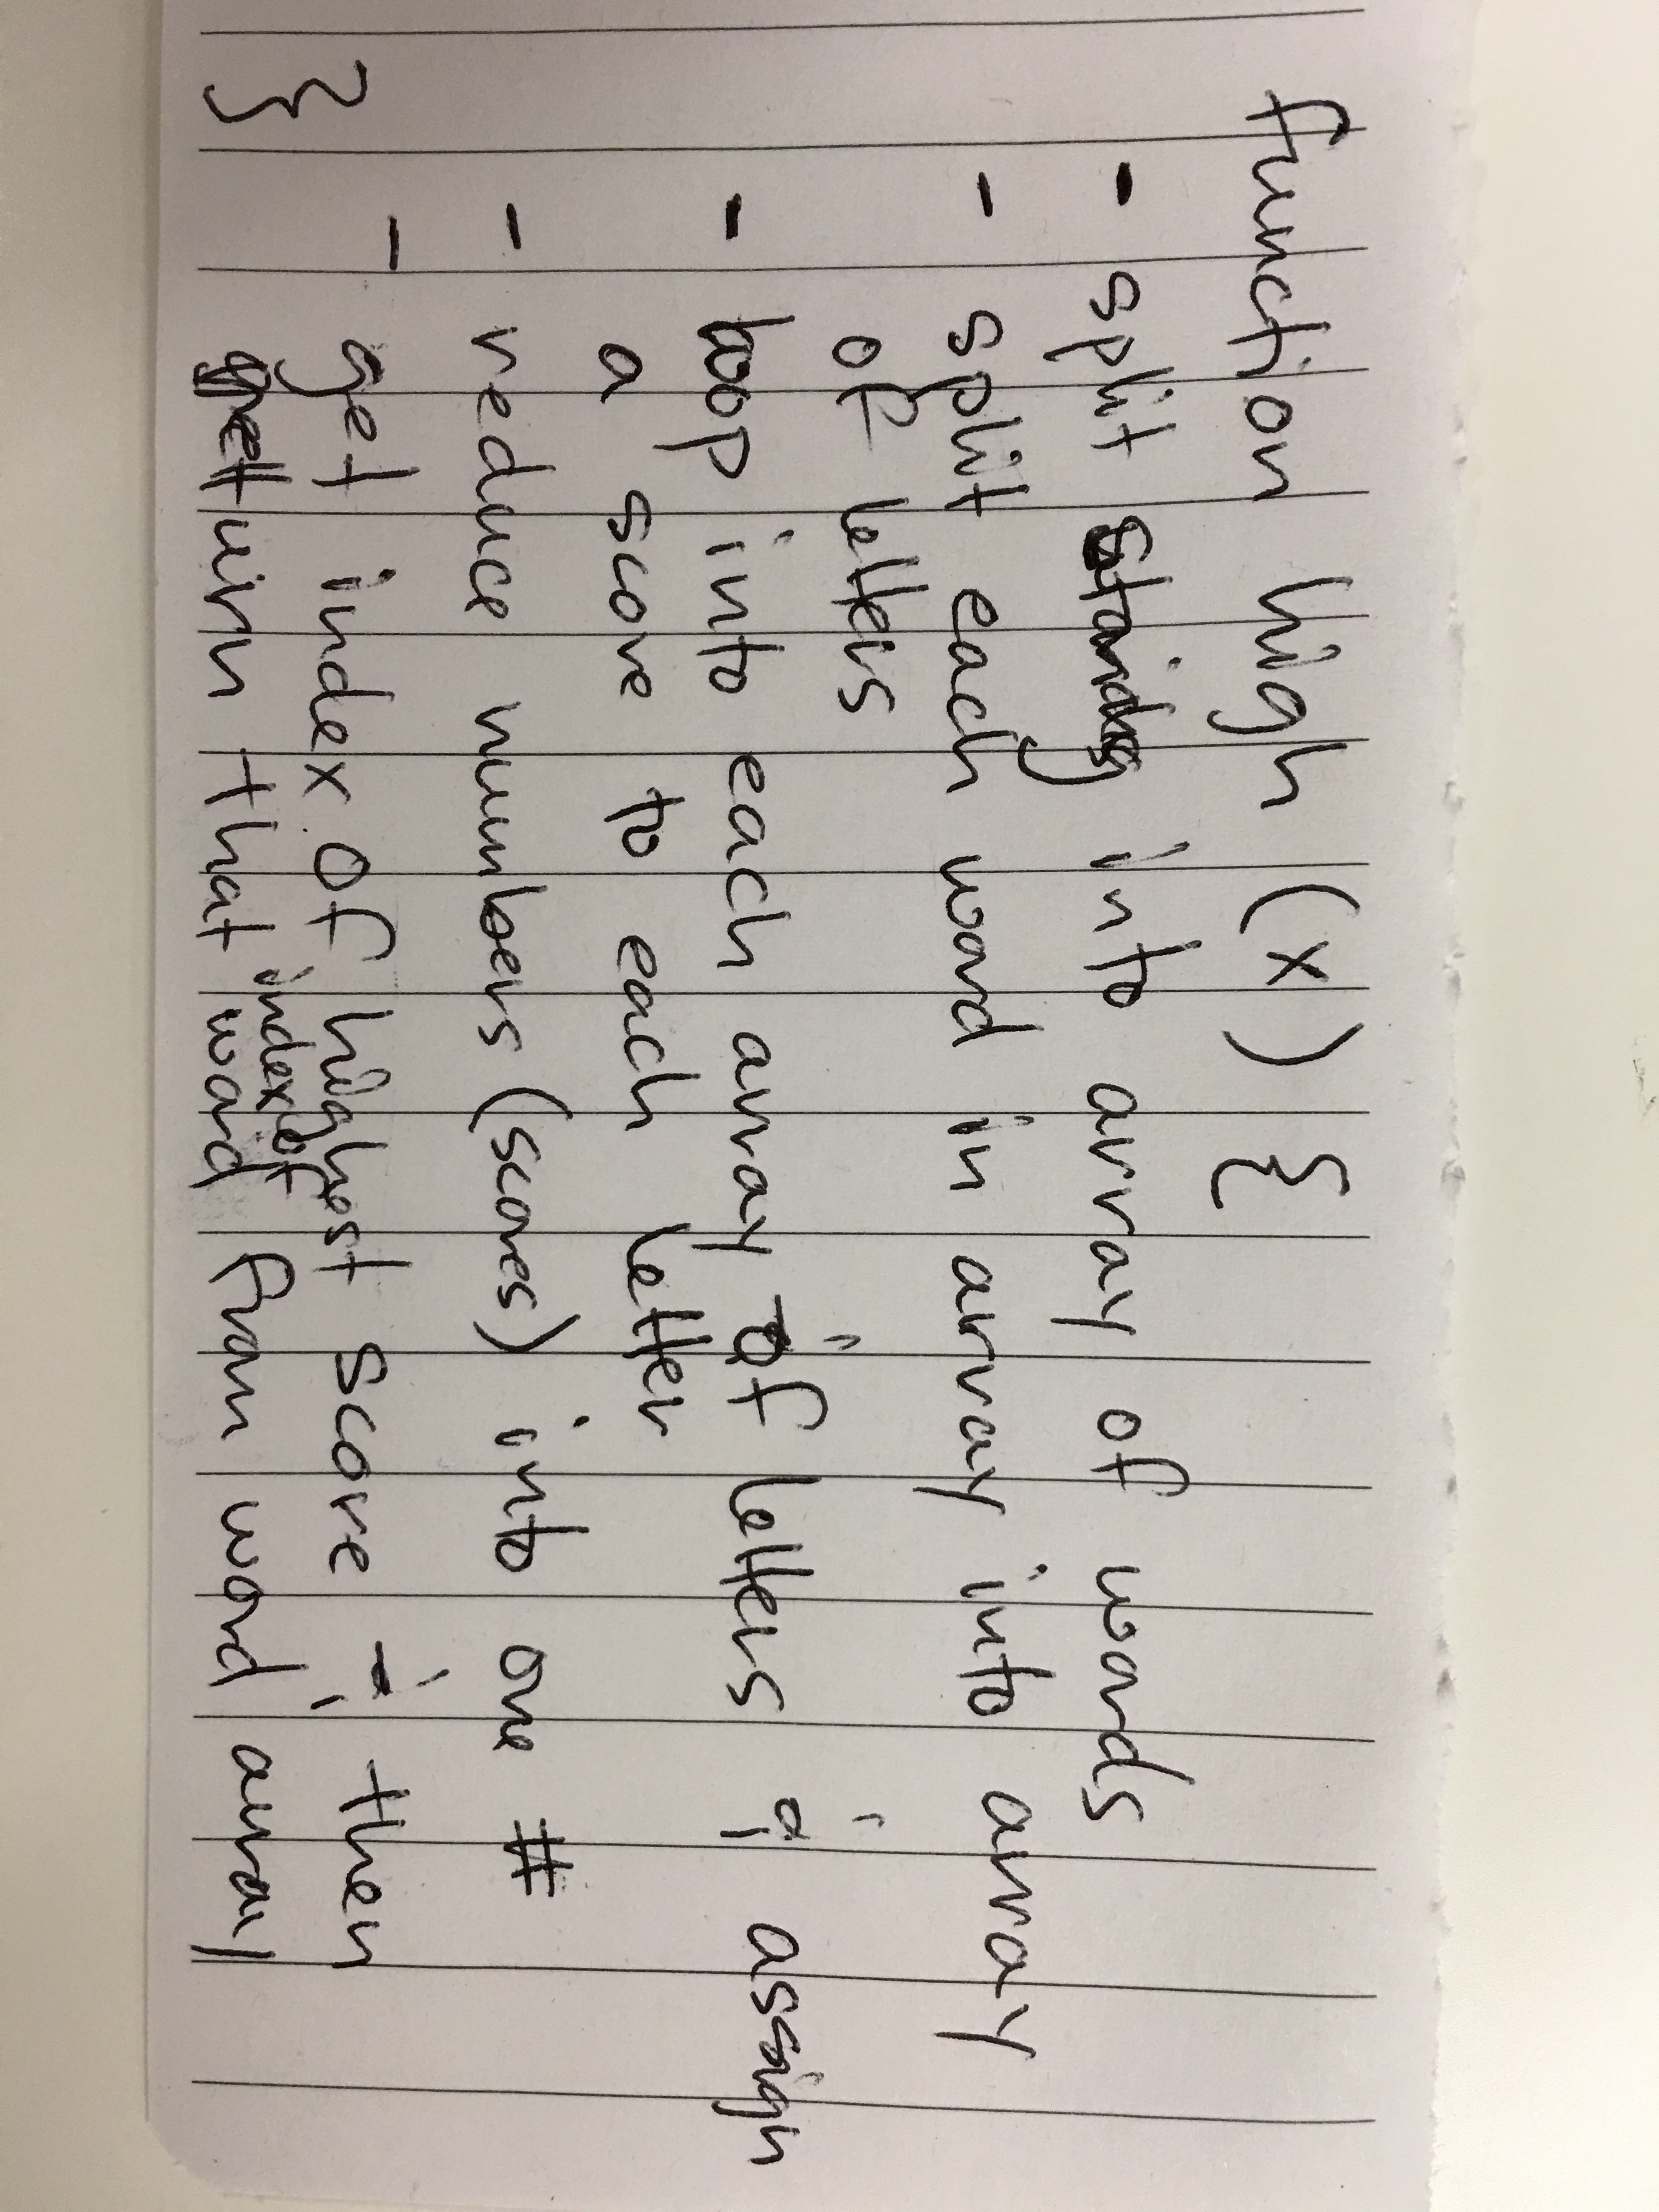 function high (x) {
- split string into array of words
- split each word in array into array
of letters
- loop into each array of letters & assign
a score to each letter
- reduce numbers (scores) into one #
- get index of highest score & then
return that index of word from word array
}